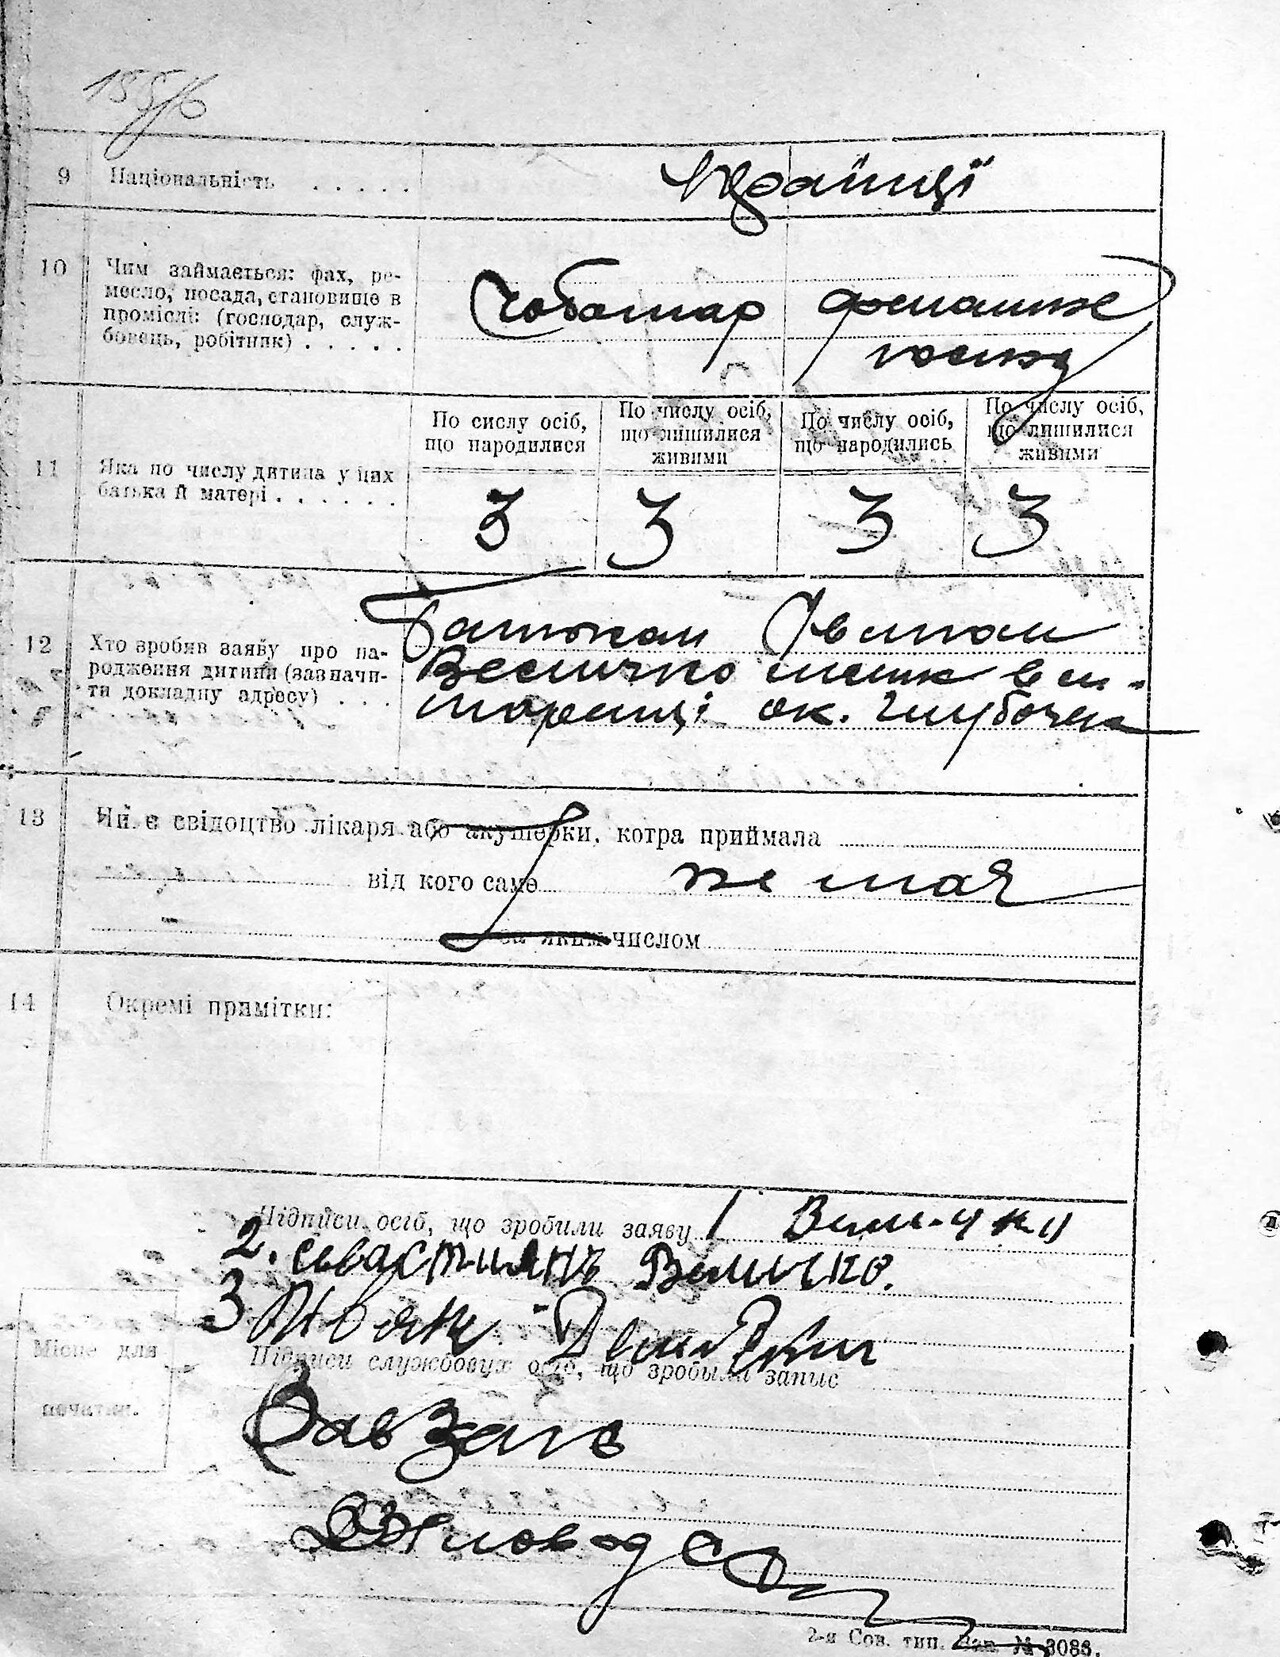 155/б
9 Національність . . . . . Українці
10 Чим займається: фах, ре-
месло, посада, становище в
проміслі: (господар, служ-
бовець, робітник) . . . . .
Чоботар домашнє
11 Яка по числу дитина у цих
батька й матері . . . . . .
По сислу осіб,
що народилися
По числу осіб,
що лишилися
живими
По числу осіб,
що народились
По числу осіб,
що лишилися
живими
3 3 3 3
12 Хто зробив заяву про на-
родження дитини (зазначи-
ти докладну адресу) . . .
Батьком
Величко
ок. Глубочек
13 Чи є свідоцтво лікаря або акушерки, котра приймала
від кого саме не має
за яким числом
14 Окремі примітки:
Підписи осіб, що зробили заяву 1 Величко
2. Севастиянъ Величко.
3
Місце для
печатки.
Підписи службових осіб, що зробыли запис
Зав Загс
Діловод
2-я Сов. тип. Зак. № 3086.